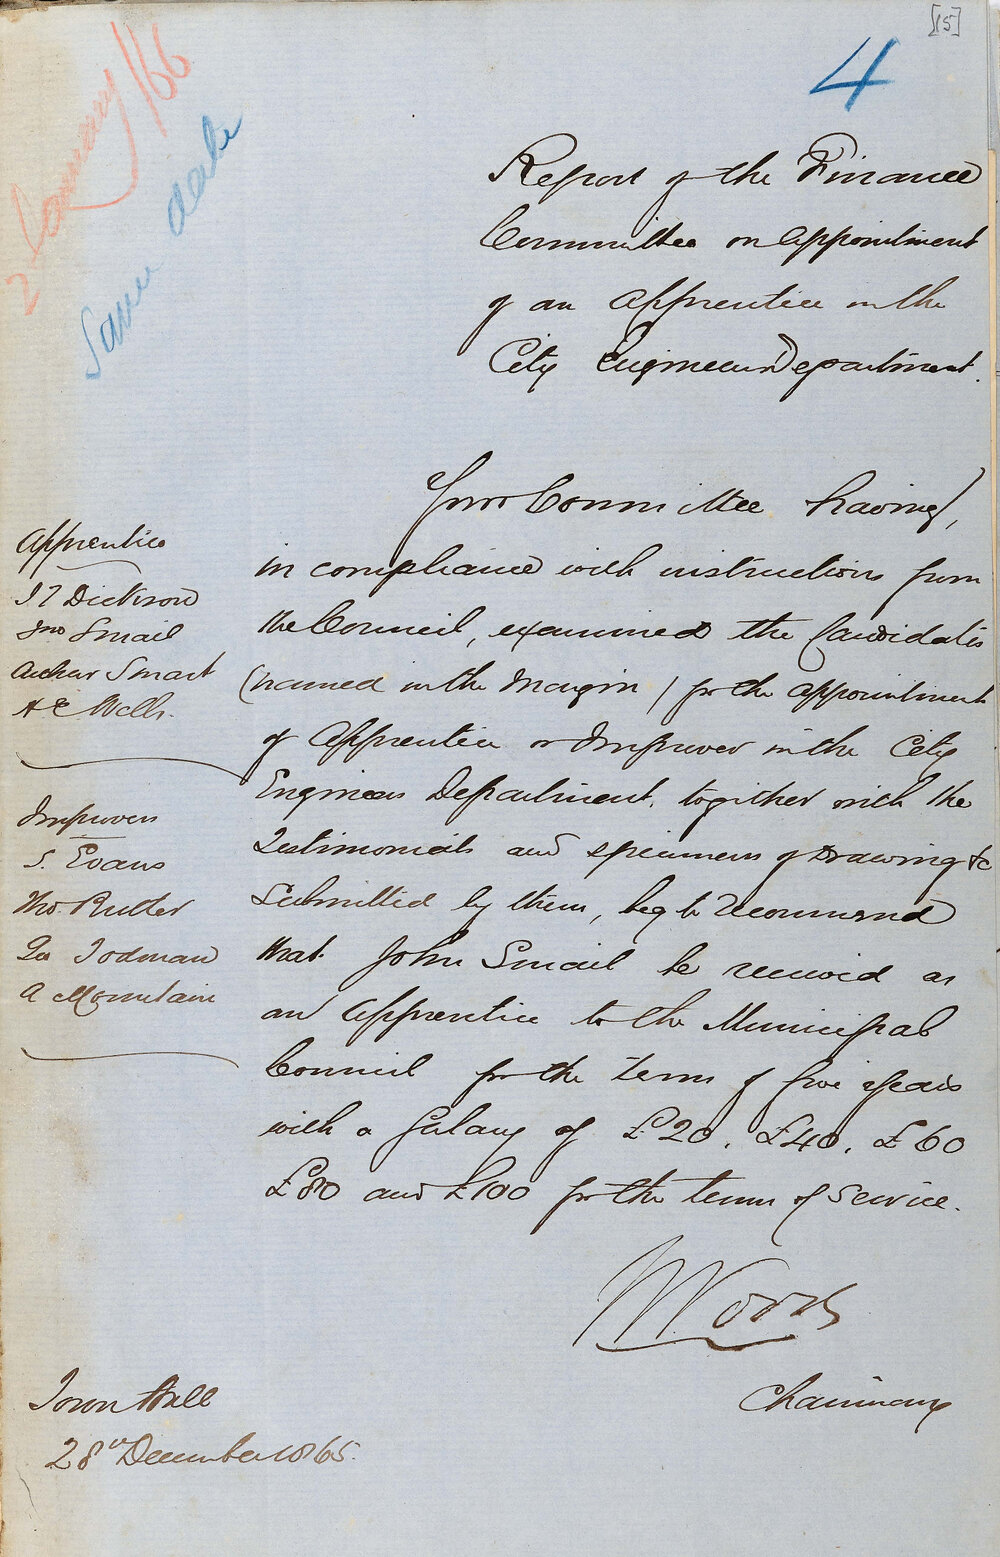 [15]
4
2 January /66
Same date
Report of the Finance
Committee on Appointment
of an Apprentice in the
City Engineers Department.
Your Committee having,
in compliance with instructions from
the Council, examined the Candidates
(named in the Margin) for the appointment
of Apprentice or Improver in the City
Engineers Department, together with the
Testimonials and specimens of Drawing &c
Submitted by them, beg to recommend
that John Smail be received as
an Apprentice to the Municipal
Council for the term of five years
with a Salary of £20, £40, £60
£80 and £100 for the term of service.
Chairman
Apprentice
J T Dickson
Jno Smail
Archer Smart
H E Wells.
Improvers
S. Evans
Tho. Rutter
Todman
A Mountain
Town Hall
28th December 1865.